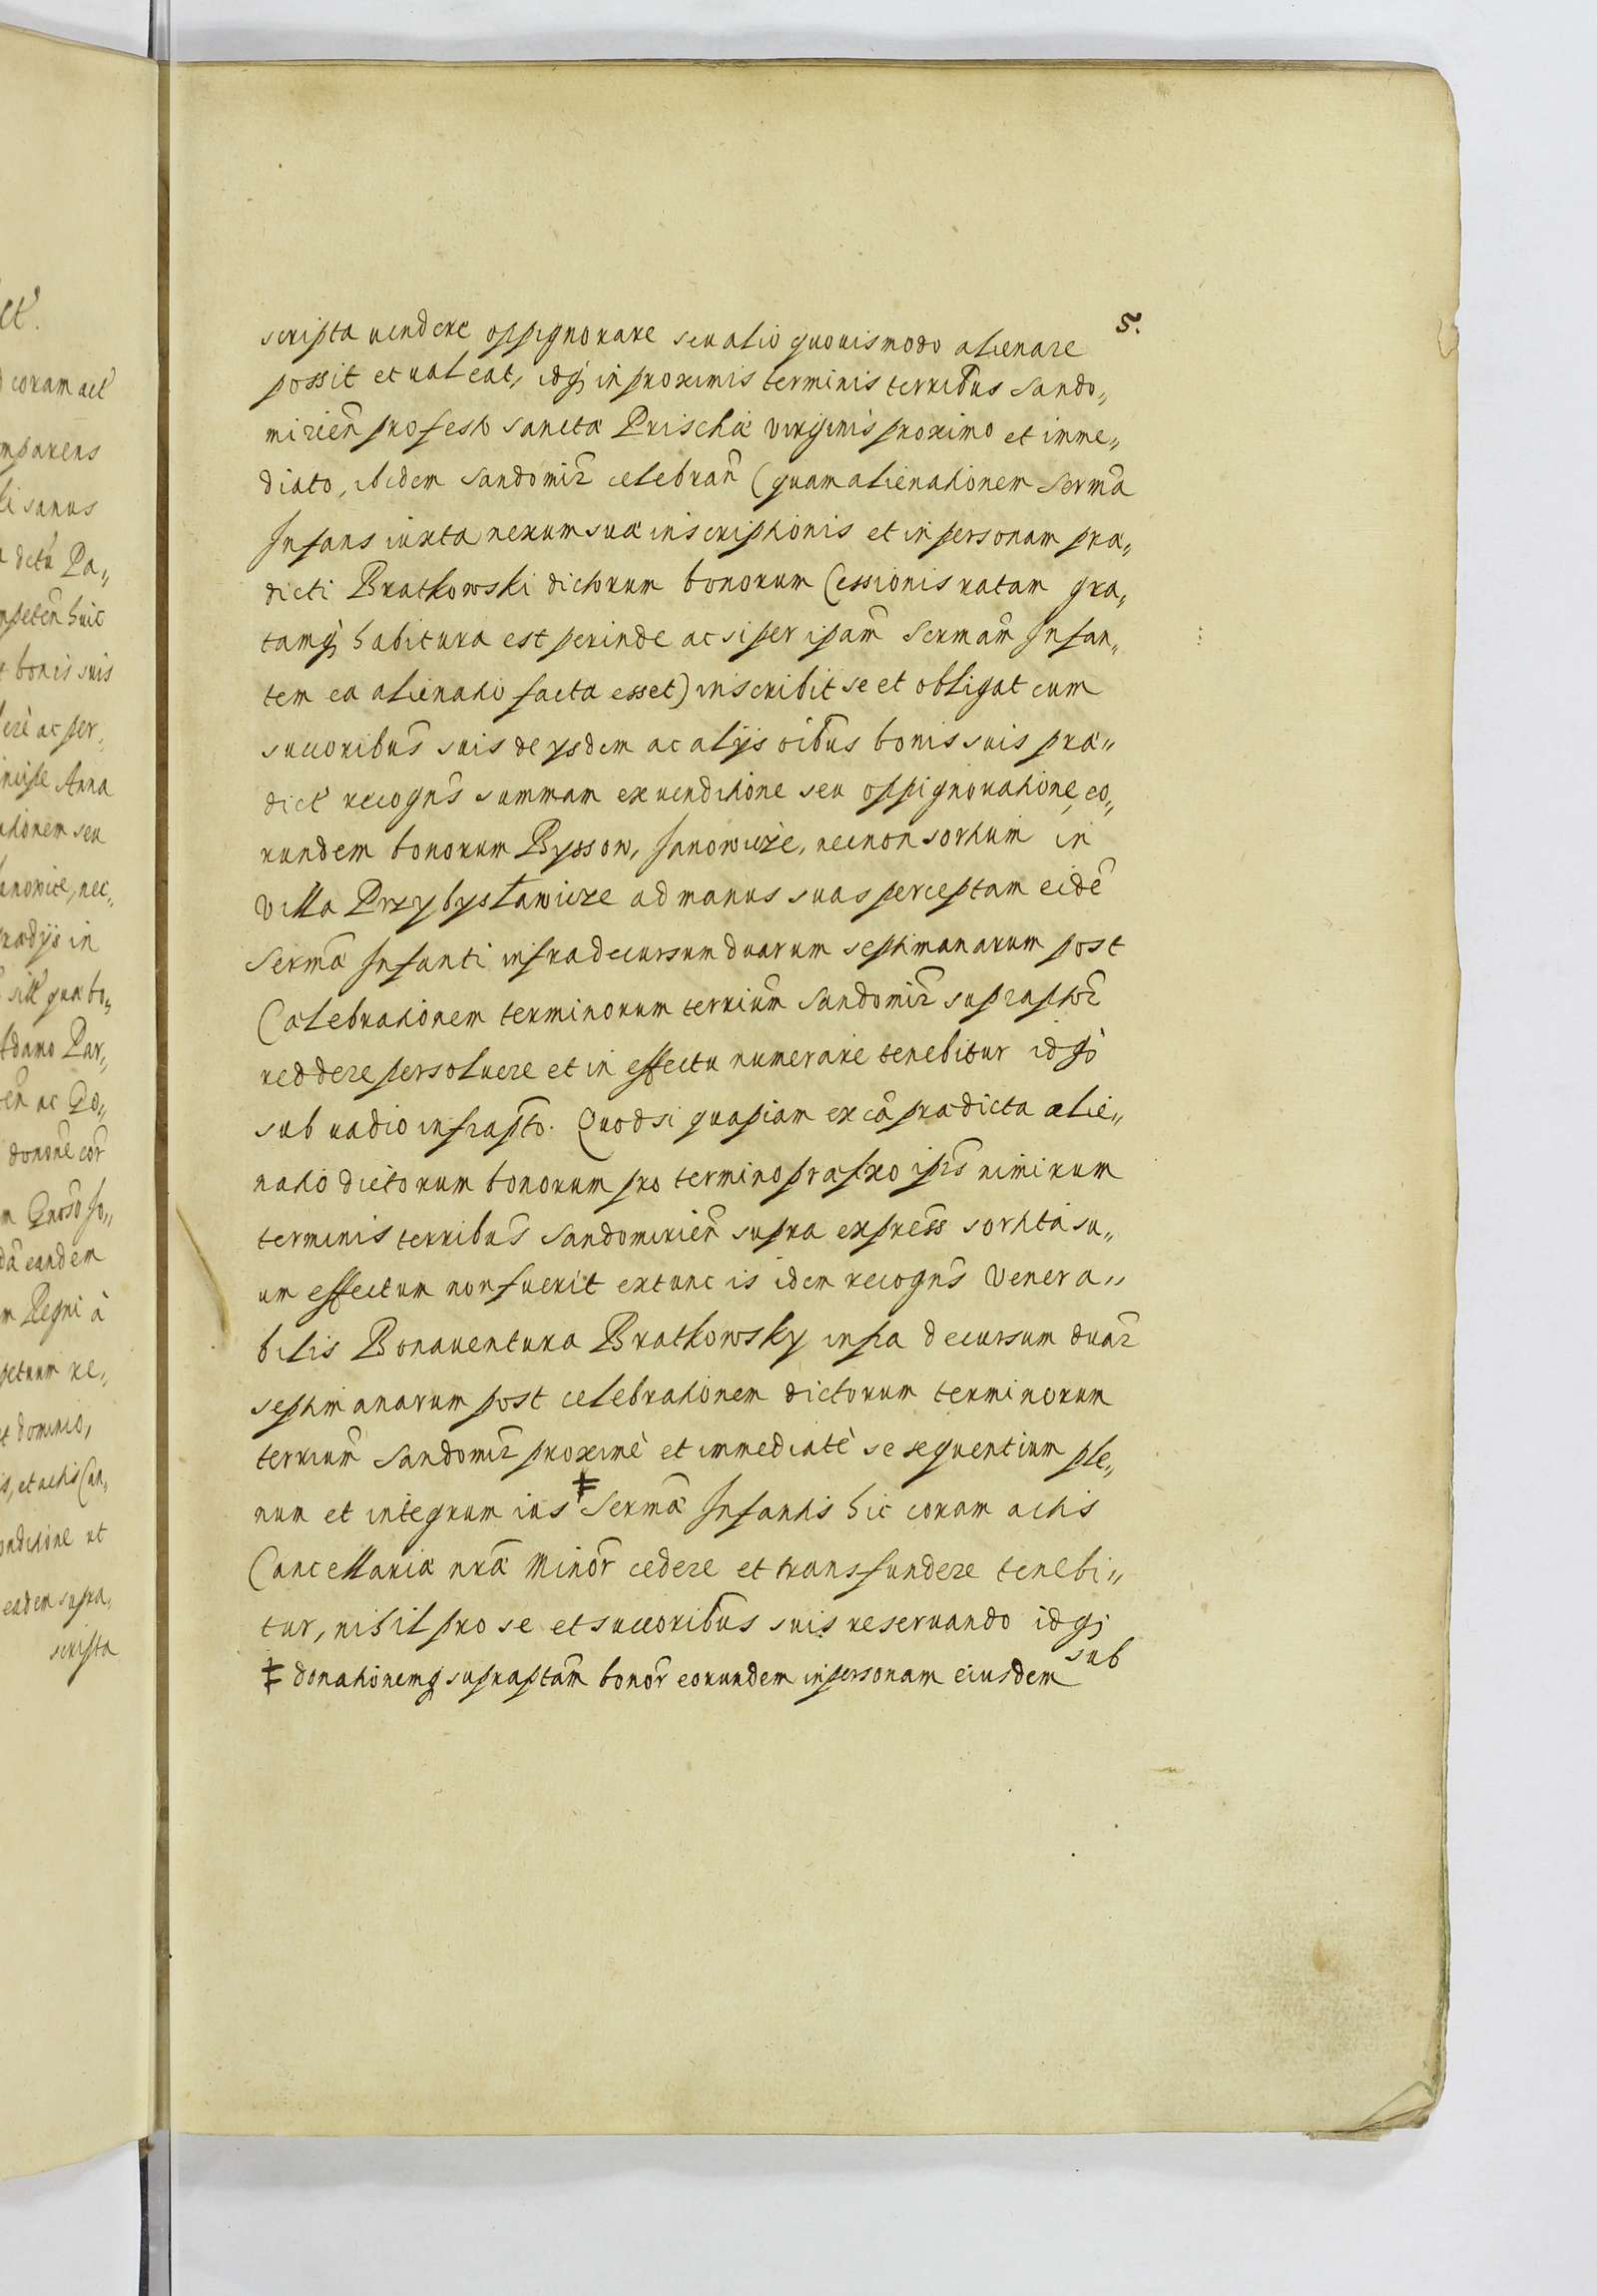 5.
scripta uendere oppignorare seu alio quouismodo alienare
possit et ualeat, idq; in proximis terminis terribus Sando„
mirien̄ pro festo Sanctæ Prischæ Virginis proximo et imme„
diato, ibidem Sandomir̄ celebran̄ (quam alienationem Serma̅
Infans iuxta nexum suæ inscriptionis et in personam præ„
dicti Bratkowski dictorum bonorum Cessionis ratam gra„
tamq; habitura est perinde ac si per ipam̅ Sermam̅ Infan„
tem ea alienatio facta esset) inscribit se et obligat cum
succoribus̅ suis de ysdem ac alijs oibus̅ bonis suis præ„
dict recogns̅ summam ex uenditione seu oppignoratione, eo„
rundem bonorum Byssow, Janowicze, necnon sortium in
Villa Przybysławicze ad manus suas perceptam eide̅
Sermæ̅ Infanti infra decursum duarum septimanarum post
Cælebrationem terminorum terrium̅ Sandomir̄ supraptor̄
reddere persoluere et in effectu numerare tenebitur idq;
sub uadio infrapto̅. Quodsi quapiam ex ca̅ prædicta alie„
natio dictorum bonorum pro termino præfixo ipis̅ nimirum
terminis terribus̅ Sandomirien̄ supra express̅ sortita su„
um effectum non fuerit extunc is idem recogns̅ Venera„
bilis Bonauentura Bratkowsky infra decursum duar̄
septimanarum post celebrationem dictorum terminorum
terrium̅ Sandomir̄ proximè et immediatè se sequentium ple„
num et integrum ius ǂ Sermæ̅ Infantis hic coram actis
Cancellariæ nræ̅ Minor̄ cedere et transfundere tenebi„
tur, nihil pro se et succoribus̅ suis reseruando idq;
sub
ǂ donationemq; supraptam̅ bonor̄ eorundem in personam eiusdem